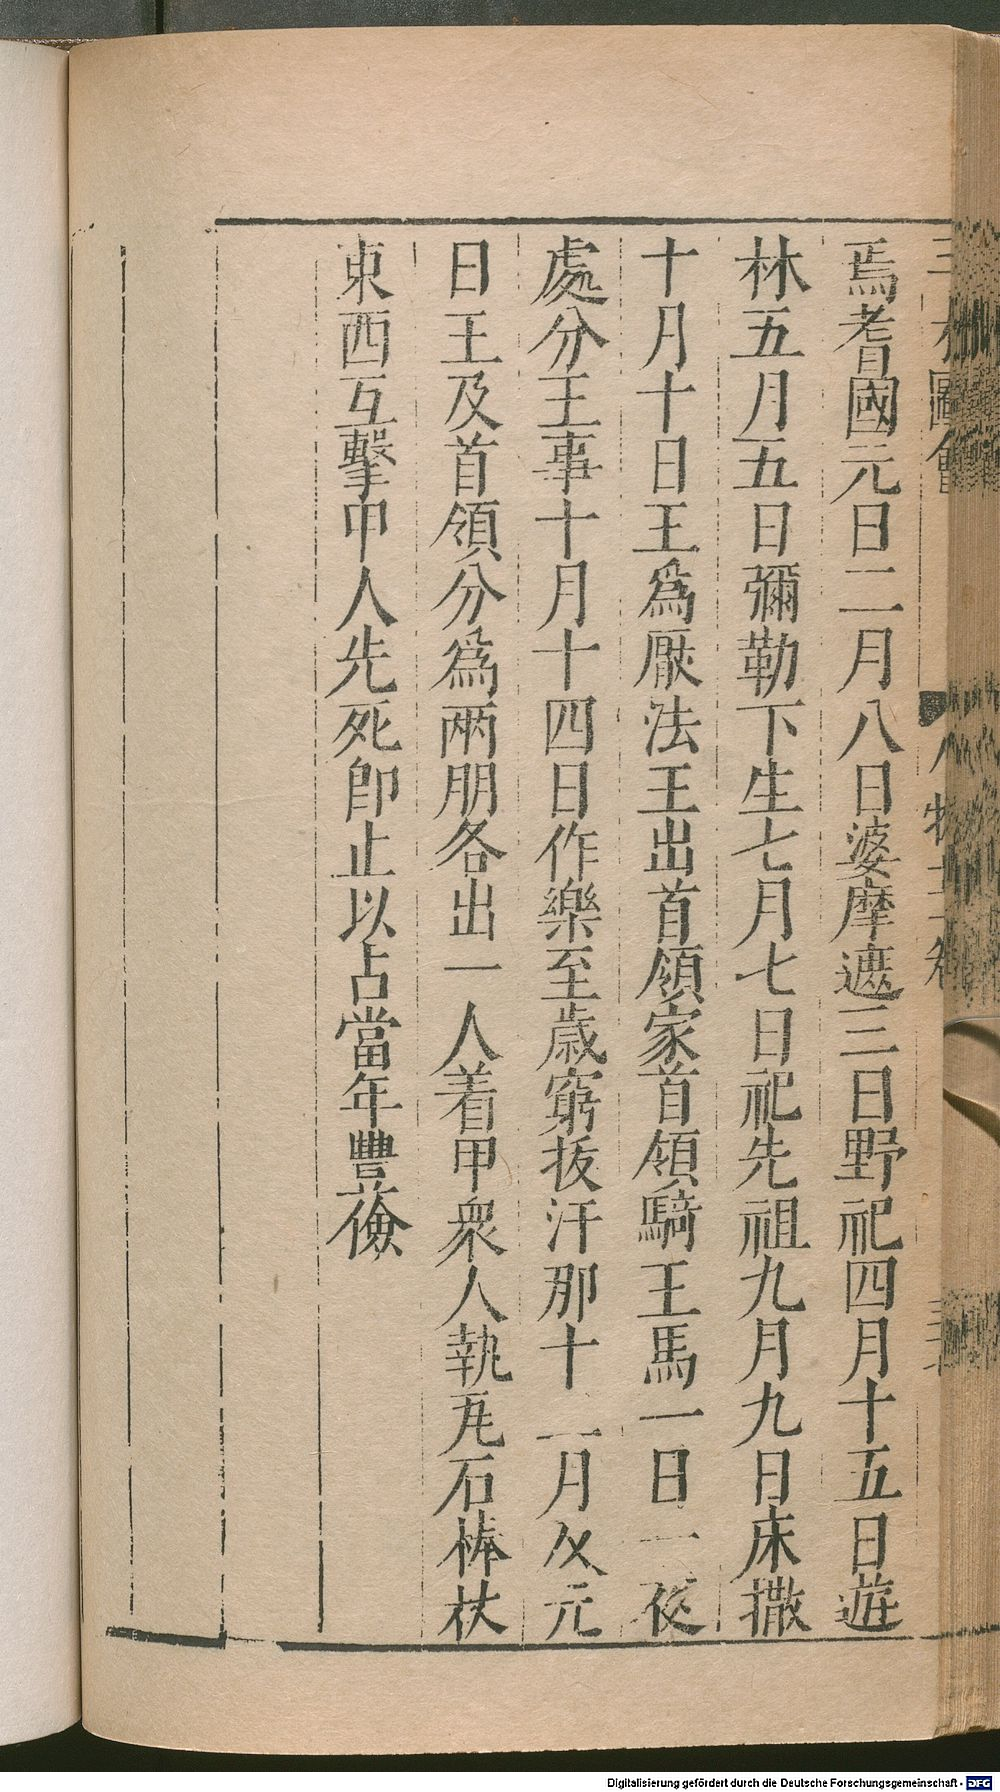 三才圖會 人物
焉耆國元日二月八日婆摩遮三日野祀四月十五日遊
林五月五日彌勒下生七月七日祀先祖九月九日床撒
十月十日王爲厭法王出首領家首領騎王馬一日一夜
處分王事十月十四日作樂至歲窮拔汗那十一月及元
日王及首領分爲兩朋各出一人着甲衆人執瓦石棒杖
東西互擊甲人先死卽止以占當年豐儉
Digitalisierung gefördert durch die Deutsche Forschungsgemeinschaft - DFG